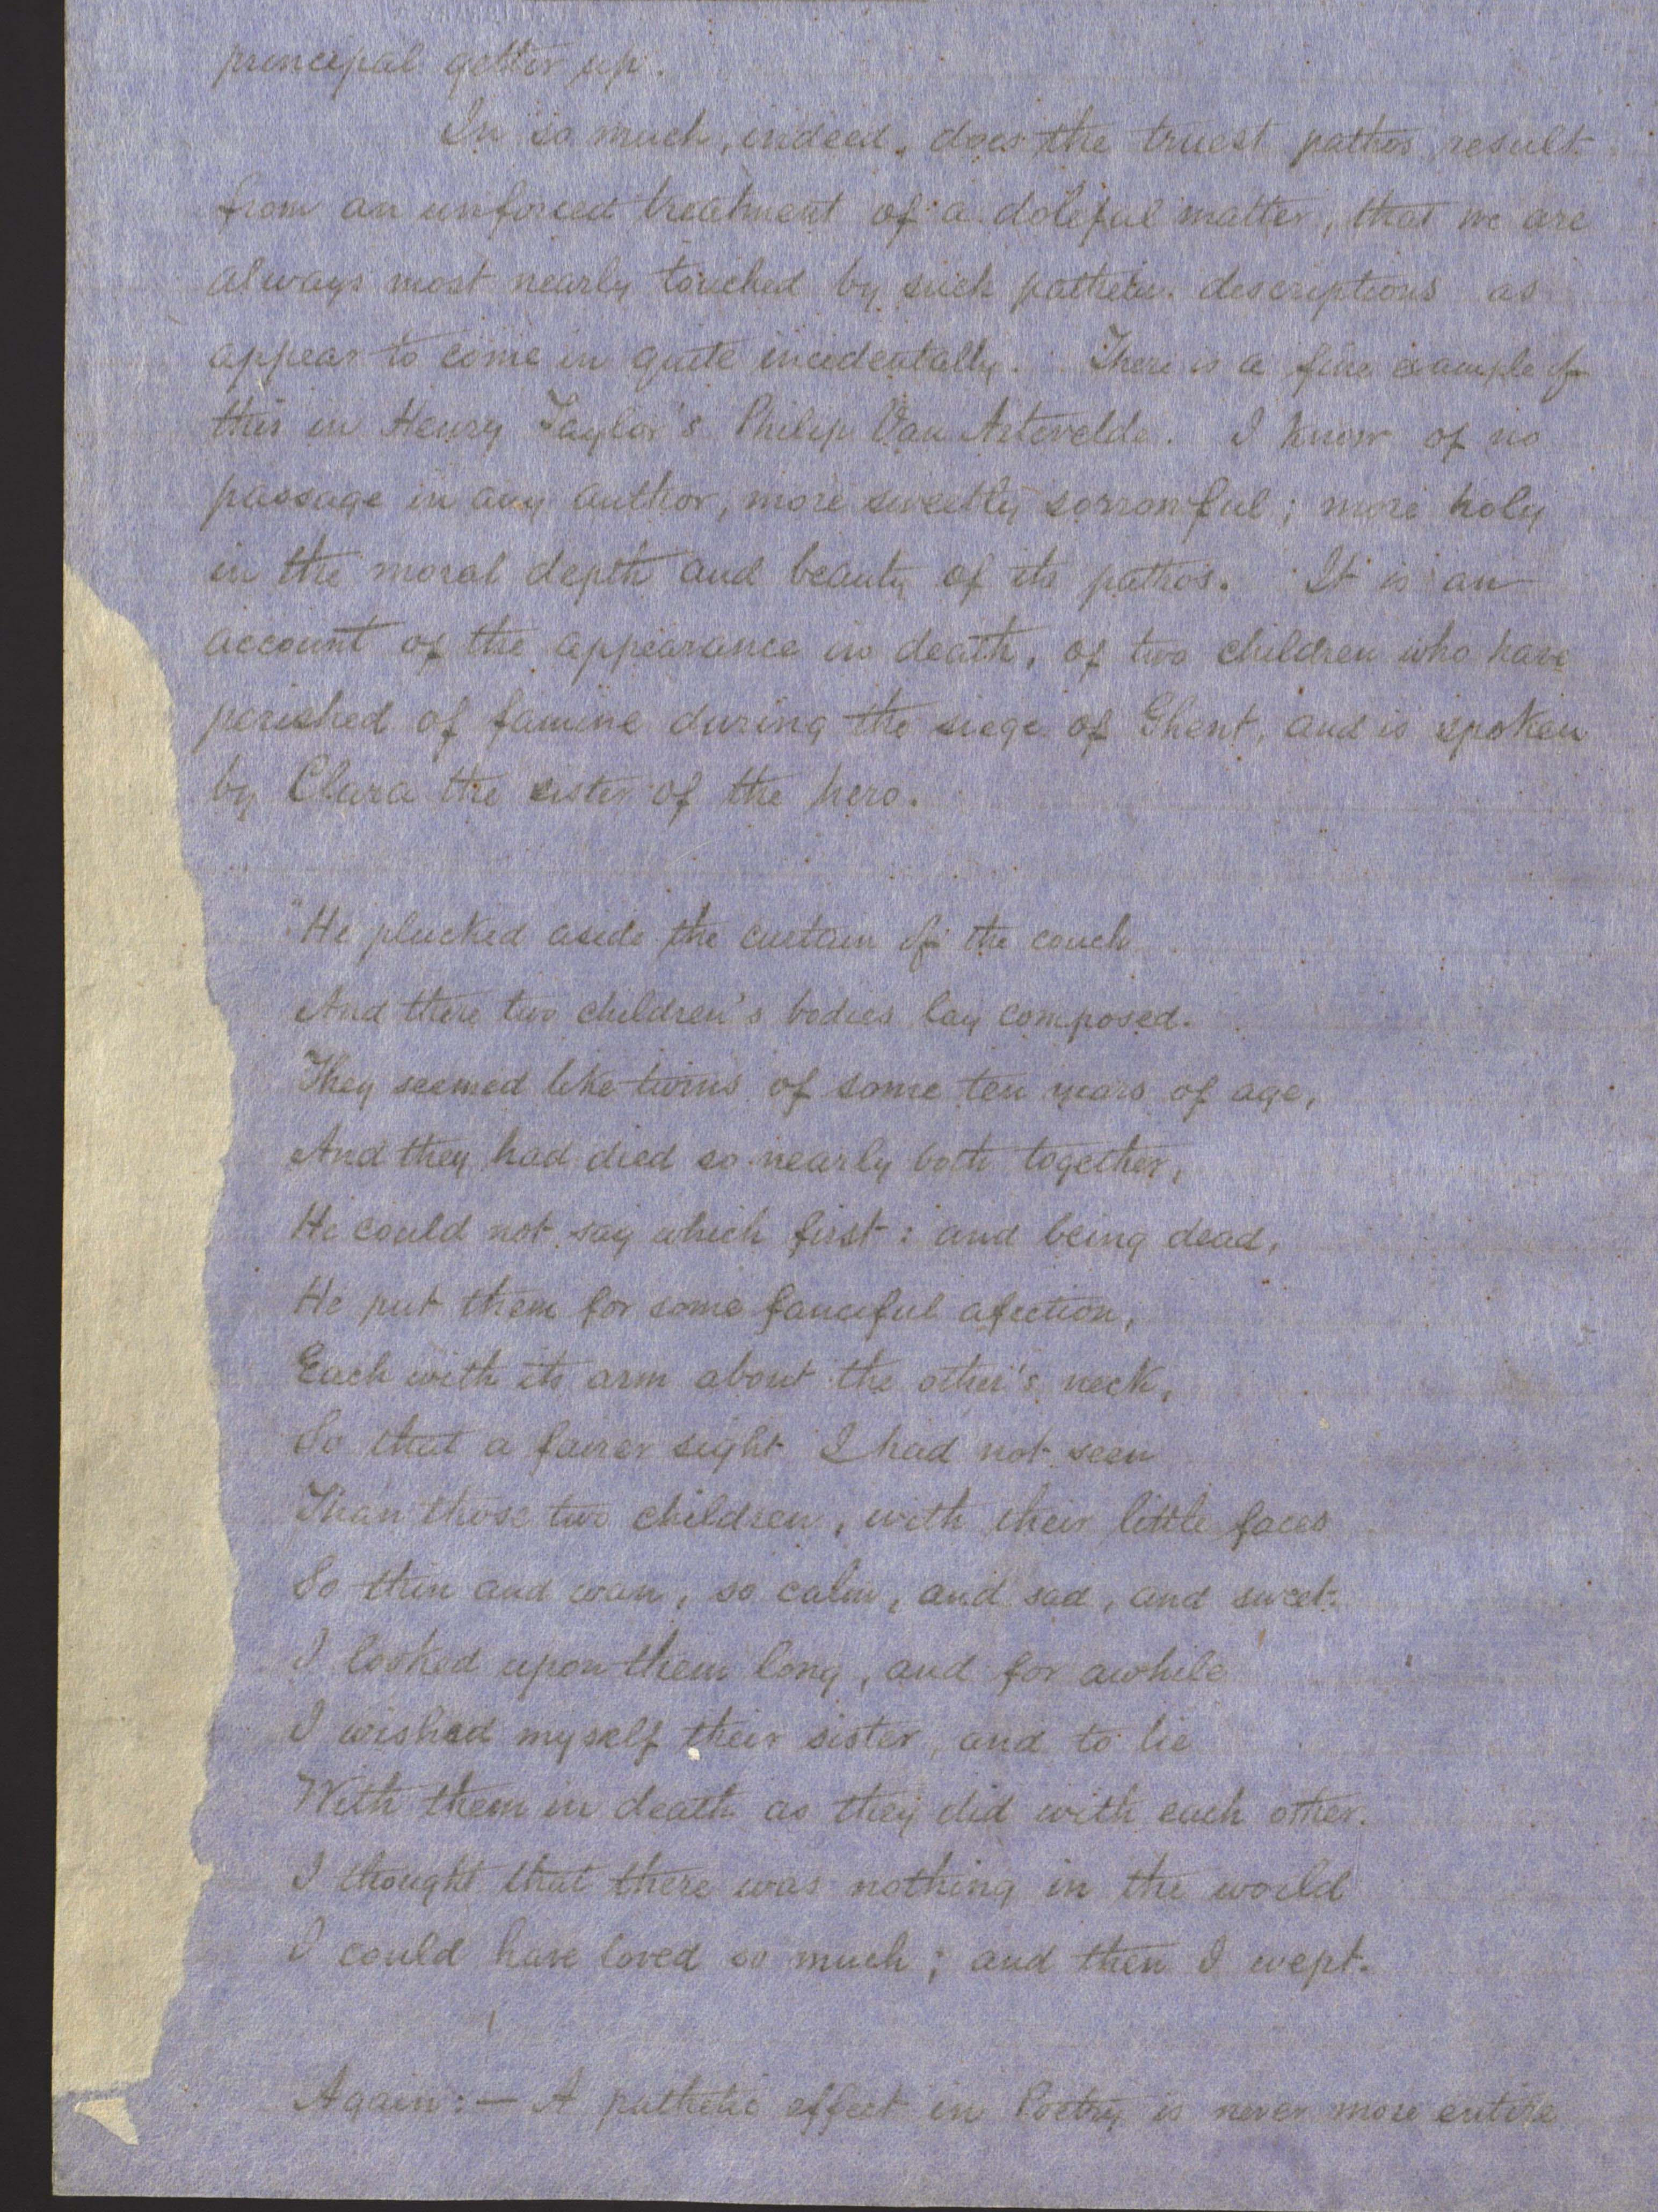 principal getter up.
In so much, indeed, does the truest pathos result
from an unforced treatment of a doleful matter, that we are
always most nearly touched by such pathetic descriptions as
appear to come in quite incidentally. There is a fine example of
this in Henry Taylor's Philip Van Artevelde. I know of no
passage in any author, more sweetly sorrowful; more holy
in the moral depth and beauty of its pathos. It is an
account of the appearance in death, of two children who have
perished of famine during the siege of Ghent, and is spoken
by Clara the sister of the hero.
"He plucked aside the curtain of the couch
And there two children's bodies lay composed.
They seemed like twins of some ten years of age,
And they had died so nearly both together,
He could not say which first: and being dead,
He put them for some fanciful afection,
Each with its arm about the other's neck,
So that a fairer sight I had not seen
Than those two children, with their little faces
So thin and wan, so calm, and sad, and sweet.
I looked upon them long, and for awhile
I wished myself their sister, and to lie
With them in death as they did with each other.
I thought that there was nothing in the world
I could have loved so much; and then I wept.
Again:— A pathetic effect in Poetry is never more entire